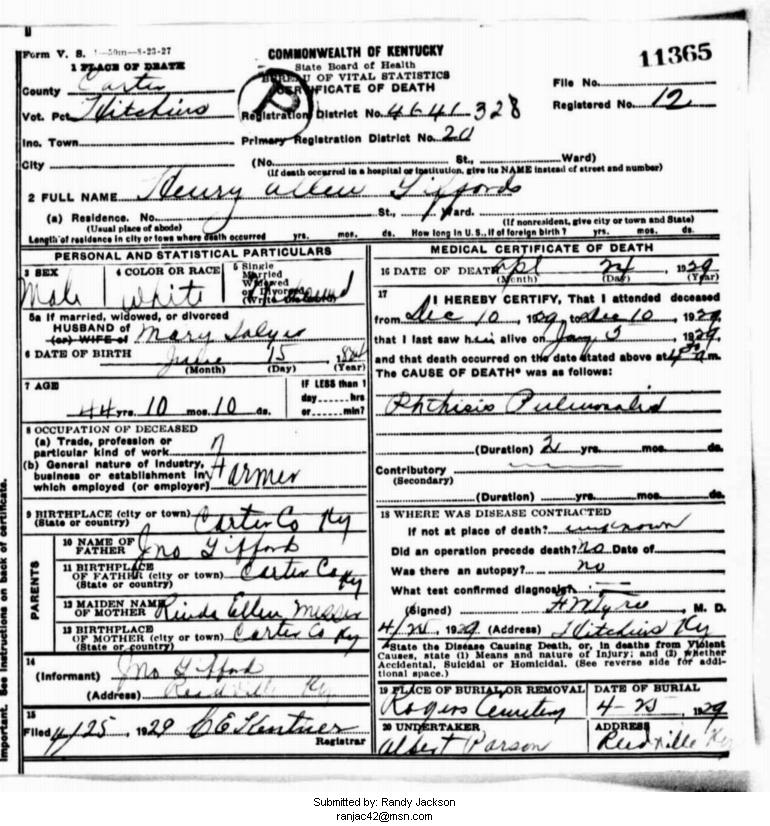 Form V. S. 1-50m-8-23-27
1 PLACE OF DEATH
County Carter
Vot. Pct. Hitchins
Inc. Town
City
COMMONWEALTH OF KENTUCKY
State Board of Health
BUREAU OF VITAL STATISTICS
CERTIFICATE OF DEATH
Registration District No. 4641 328
Primary Registration District No. 20
11365
File No.
Registered No. 12
(No. St., Ward)
(If death occurred in a hospital or institution, give its NAME instead of street and number)
2 FULL NAME Henry Allen Giffords
(a) Residence. No. St., Ward.
(Usual place of abode) (If nonresident, give city or town and State)
Length of residence in city or town where death occurred yrs. mos. ds. How long in U.S., if of foreign birth? yrs. mos. ds.
PERSONAL AND STATISTICAL PARTICULARS
3 SEX Male
4 COLOR OR RACE White
5 Single
Married
Widowed
or Divorced
(Write the word)
5a If married, widowed, or divorced
HUSBAND of Mary
(or) WIFE of
6 DATE OF BIRTH June 15
(Month) (Day) (Year)
7 AGE 44 yrs. 10 mos. 10 ds.
IF LESS than 1
day hrs
or min?
8 OCCUPATION OF DECEASED
(a) Trade, profession or
particular kind of work
(b) General nature of industry,
business or establishment in
which employed (or employer) Farmer
9 BIRTHPLACE (city or town) Carter Co Ky
(State or country)
PARENTS
10 NAME OF
FATHER Jno Gifford
11 BIRTHPLACE
OF FATHER (city or town) Carter Co Ky
(State or country)
12 MAIDEN NAME
OF MOTHER Rinda Ellen Messer
13 BIRTHPLACE
OF MOTHER (city or town) Carter Co Ky
(State or country)
14
(Informant) Jno Gifford
(Address) Reedville Ky
15
Filed 4/25, 1929 C E
Registrar
MEDICAL CERTIFICATE OF DEATH
16 DATE OF DEATH Apl 24 1929
(Month) (Day) (Year)
17
I HEREBY CERTIFY, That I attended deceased
from Dec 10, 1929 to Dec 10, 1929
that I last saw him alive on Jany 3, 1929,
and that death occurred on the date stated above at m.
The CAUSE OF DEATH* was as follows:
Phthisis Pulmonalis
(Duration) 2 yrs. mos. ds.
Contributory
(Secondary)
(Duration) yrs. mos. ds.
18 WHERE WAS DISEASE CONTRACTED
If not at place of death? unknown
Did an operation precede death? no Date of
Was there an autopsy? no
What test confirmed diagnosis?
(Signed) M. D.
4/25, 1929 (Address) Hitchins Ky
*State the Disease Causing Death, or, in deaths from Violent
Causes, state (1) Means and nature of Injury; and (2) whether
Accidental, Suicidal or Homicidal. (See reverse side for addi-
tional space.)
19 PLACE OF BURIAL OR REMOVAL Rogers Cemetery
DATE OF BURIAL 4-25 1929
20 UNDERTAKER Albert Parson
ADDRESS Reedville Ky
Important. See instructions on back of certificate.
Submitted by: Randy Jackson
ranjac42@msn.com